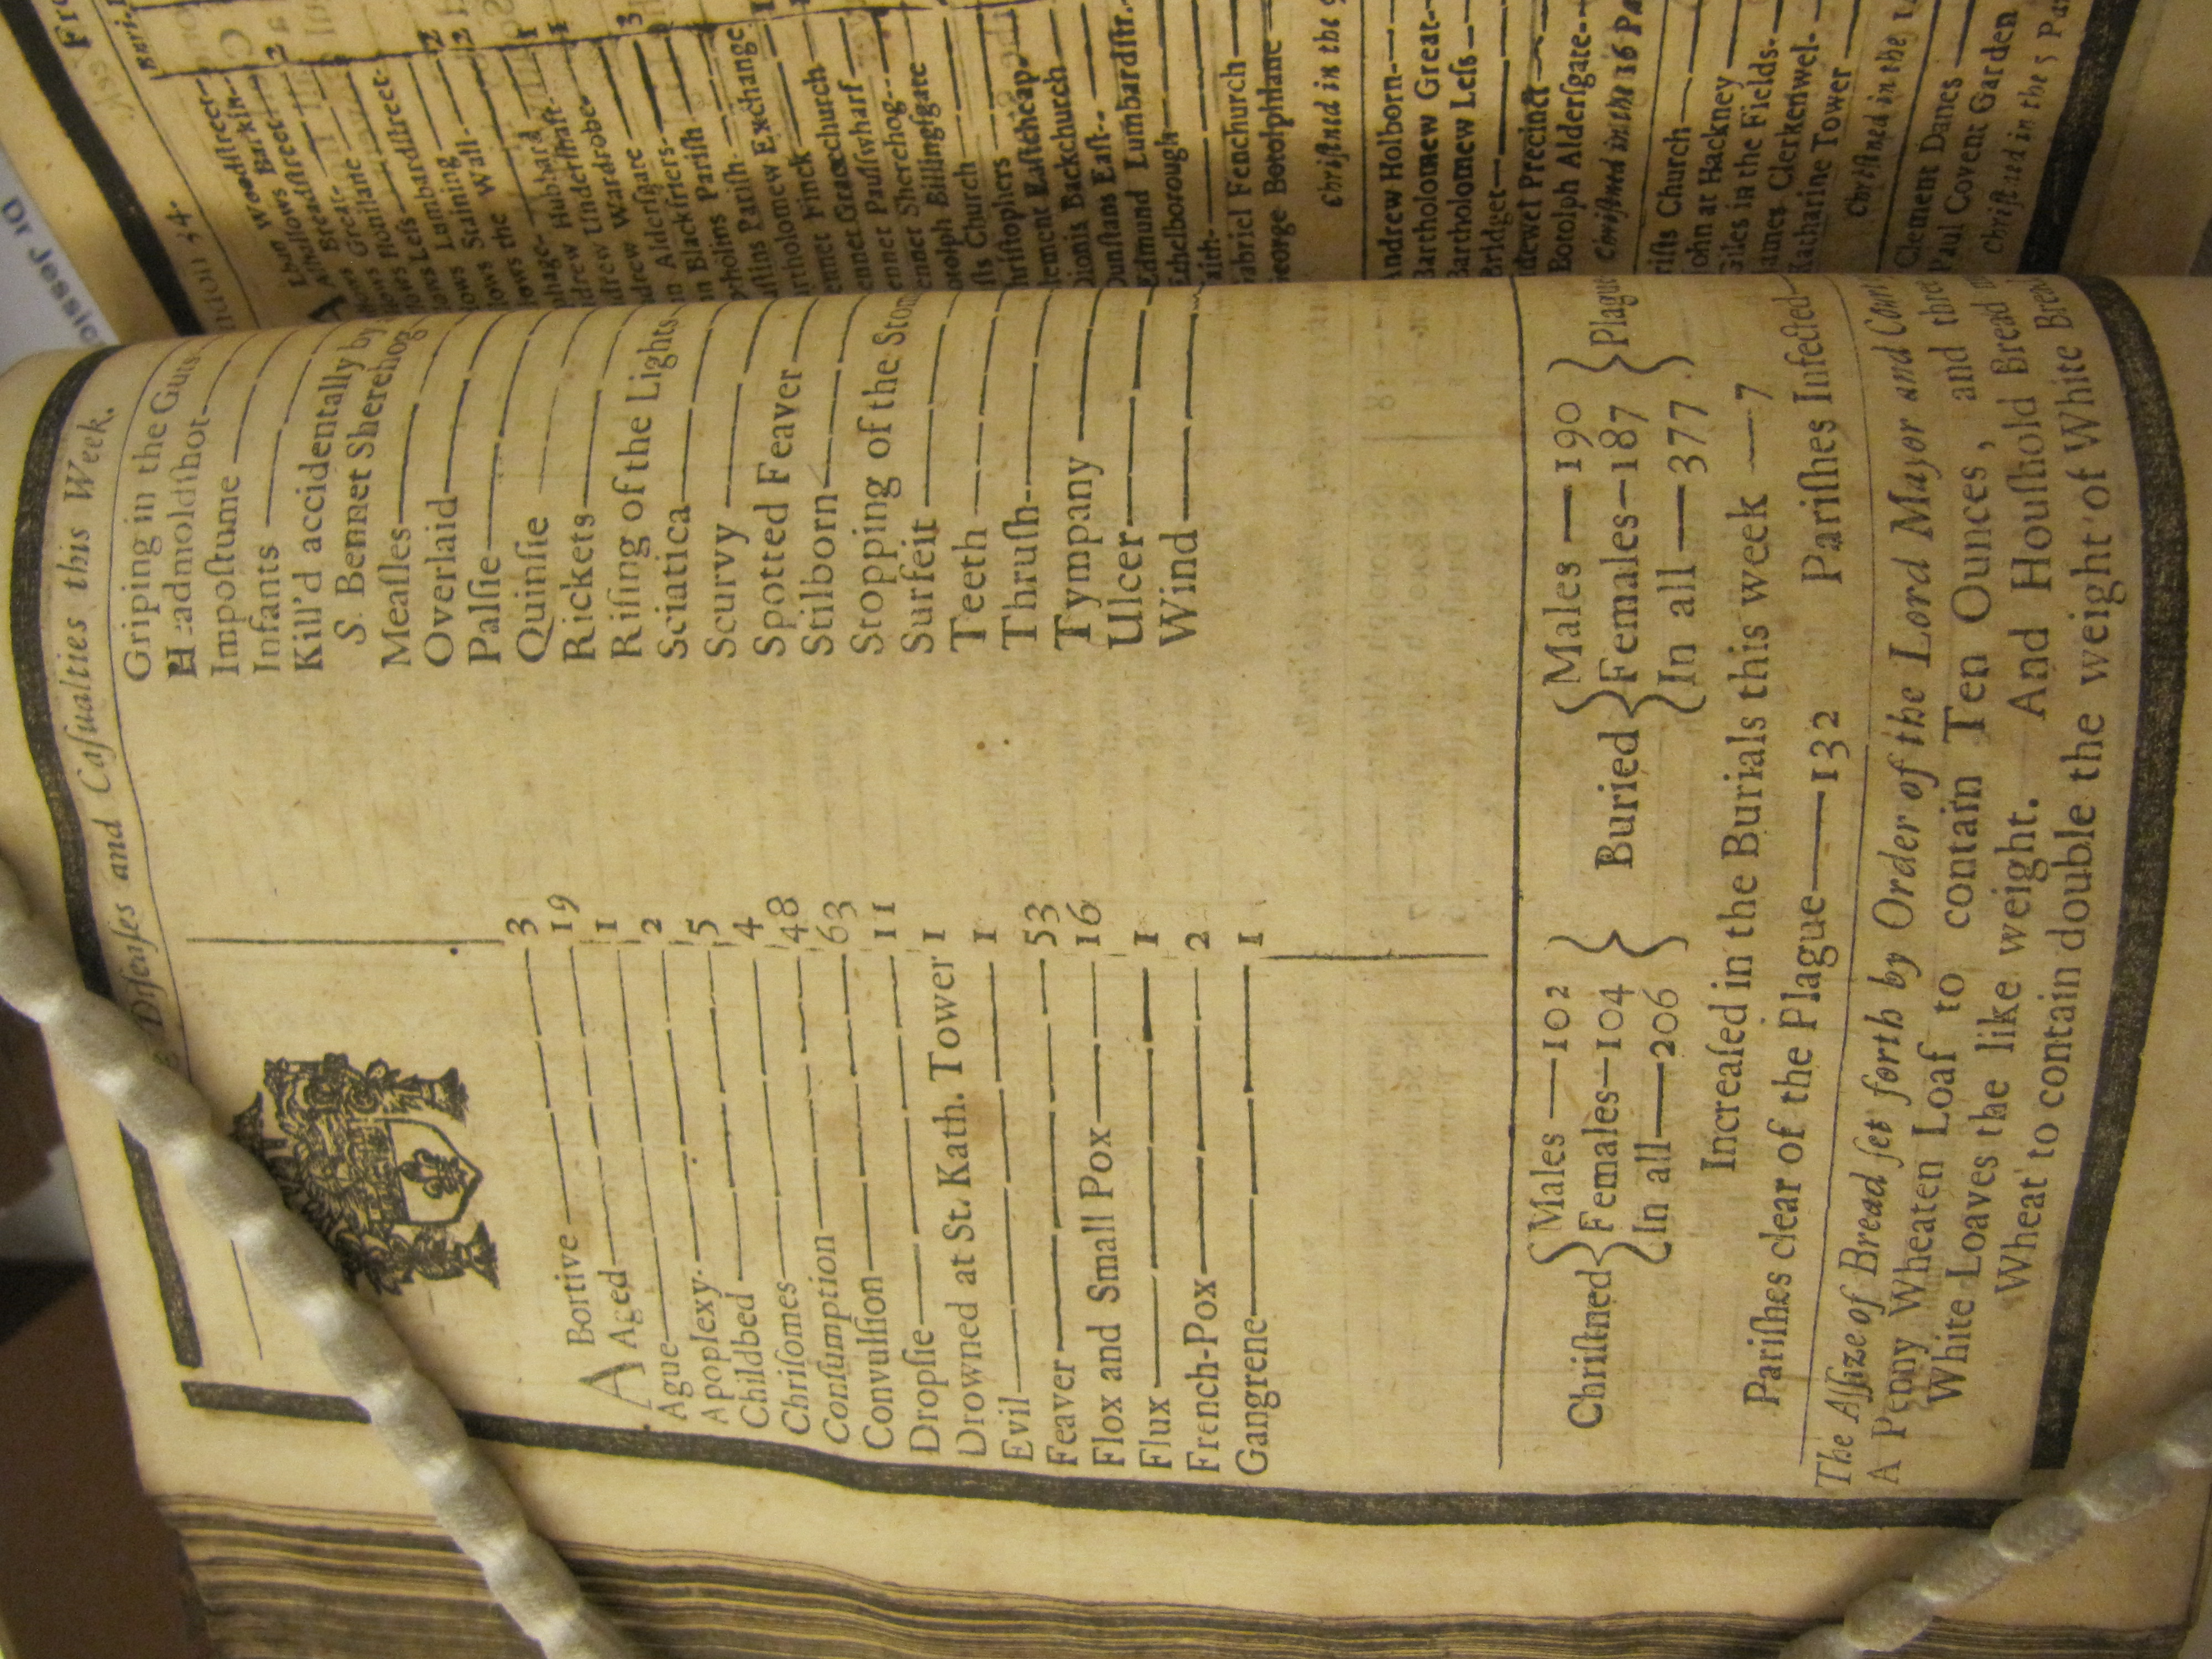 Diſeaſes and Caſualties this Week.
Bortive 3
A Aged 19
Ague 1
Apoplexy 2
Childbed 5
Chriſomes 4
Conſumption 48
Convulſion 63
Dropſie 11
Drowned at St. Kath. Tower 1
Evil 1
Feaver 53
Flox and Small Pox 16
Flux 1
French-Pox 2
Gangrene 1
Griping in the Guts
Headmoldſhot
Impoſtume
Infants
Kill'd accidentally by
S. Bennet Sherehog
Meaſles
Overlaid
Palſie
Quinſie
Rickets
Riſing of the Lights
Sciatica
Scurvy
Spotted Feaver
Stilborn
Stopping of the Stom
Surfeit
Teeth
Thruſh
Tympany
Ulcer
Wind
Chriſtned { Males — 102
Females — 104
In all — 206 }
Buried { Males — 190
Females — 187
In all — 377 } Plague
Increaſed in the Burials this week — 7
Pariſhes clear of the Plague — 132 Pariſhes Infected
The Aſſize of Bread ſet forth by Order of the Lord Mayor and Court
A Penny Wheaten Loaf to contain Ten Ounces, and three
White Loaves the like weight. And Houſhold Bread
Wheat to contain double the weight of White Bread
Dr Jessic
Fro
ndon 34.
Buri
lban Woodſtreet
Alhallows Barkin 2
Breadſtreet
ows Great
ows Honilane
ows Leſs
ows Lumbardſtreet
ows Staining 2
ows the Wall 2
phage 1
drew Hubbard 1
drew Underſhaft
drew Wardrobe 3
n Alderſgate
n Blackfriers
holins Pariſh
uſtins Pariſh 1
artholomew Exchange 1
ennet Finck
ennet Gracechurch
ennet Paulſwharf
ennet Sherehog
otolph Billingſgate
ſts Church
hriſtophers
lement Eaſtcheap
Dionis Backchurch
Dunſtans Eaſt
Edmund Lumbardſtr.
Ethelborough
aith
abriel Fenchurch
eorge Botolphlane
Chriſtned in the 9
Andrew Holborn
Bartholomew Great
Bartholomew Leſs
Bridget
idewel Precinct
Botolph Alderſgate
Chriſtned in the 16 Pa
riſts Church
John at Hackney
Giles in the Fields
James Clerkenwel
Katharine Tower
Chriſtned in the 1
Clement Danes
Paul Covent Garden
Chriſtned in the 5 Pa